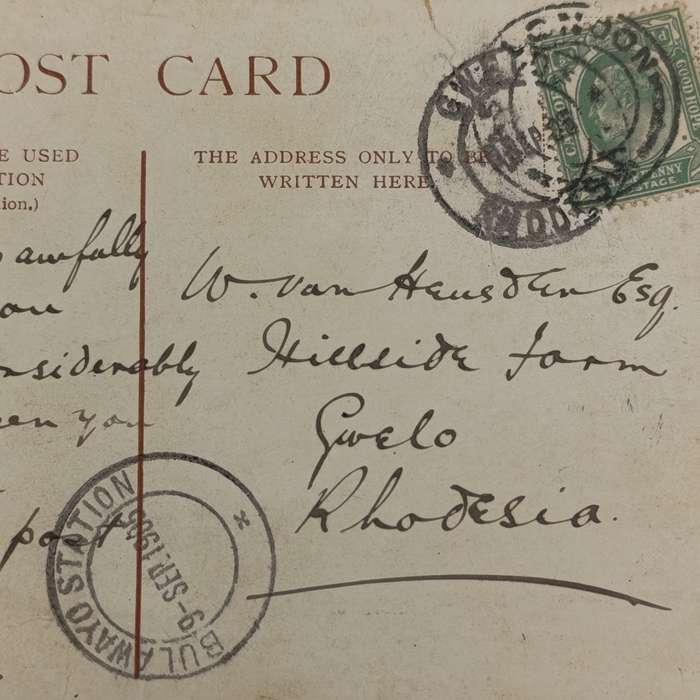 OST CARD
E USED
TION
ion.)
THE ADDRESS ONLY TO BE
WRITTEN HERE.
awfully
ou
nsiderably
en you
post
W. van Heusden Esq.
Hillside Farm
Gwelo
Rhodesia.
GWELO
RHODESIA
LONDON
GOOD HOPE
PENNY
POSTAGE
BULAWAYO STATION
9-SEP.1905